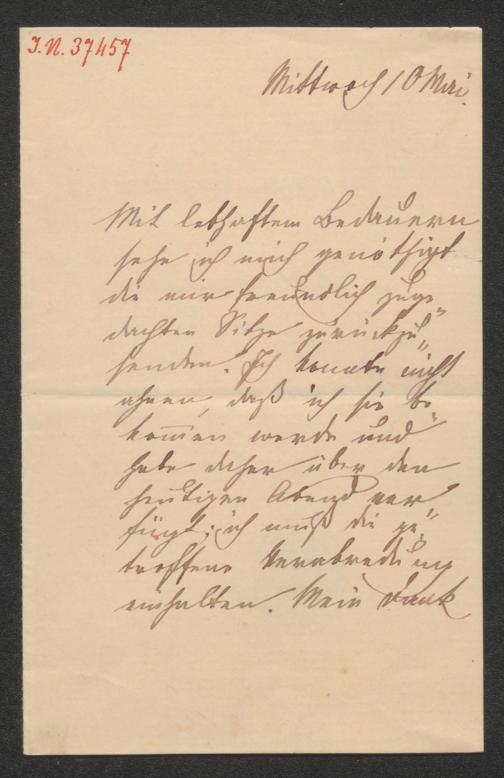 J.N. 37457
Mittwoch 10 Mai.
Mit lebhaftem Bedauern
sehe ich mich genöthigt
die mir freundlich zuge„
dachten Sitze zurückzu„
senden. Ich konnte nicht
ahnen, daß ich sie be„
kom̅en werde und
habe daher über den
heutigen Abend ver
fügt; ich muß die ge„
troffene Verabredung
einhalten. Mein Dank